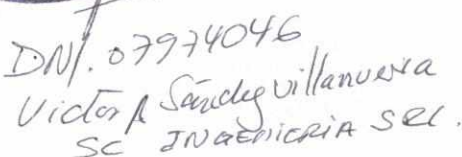 DNI. 07974046
Victor A Sánchez Villanueva
SC INGENIERIA SRL.